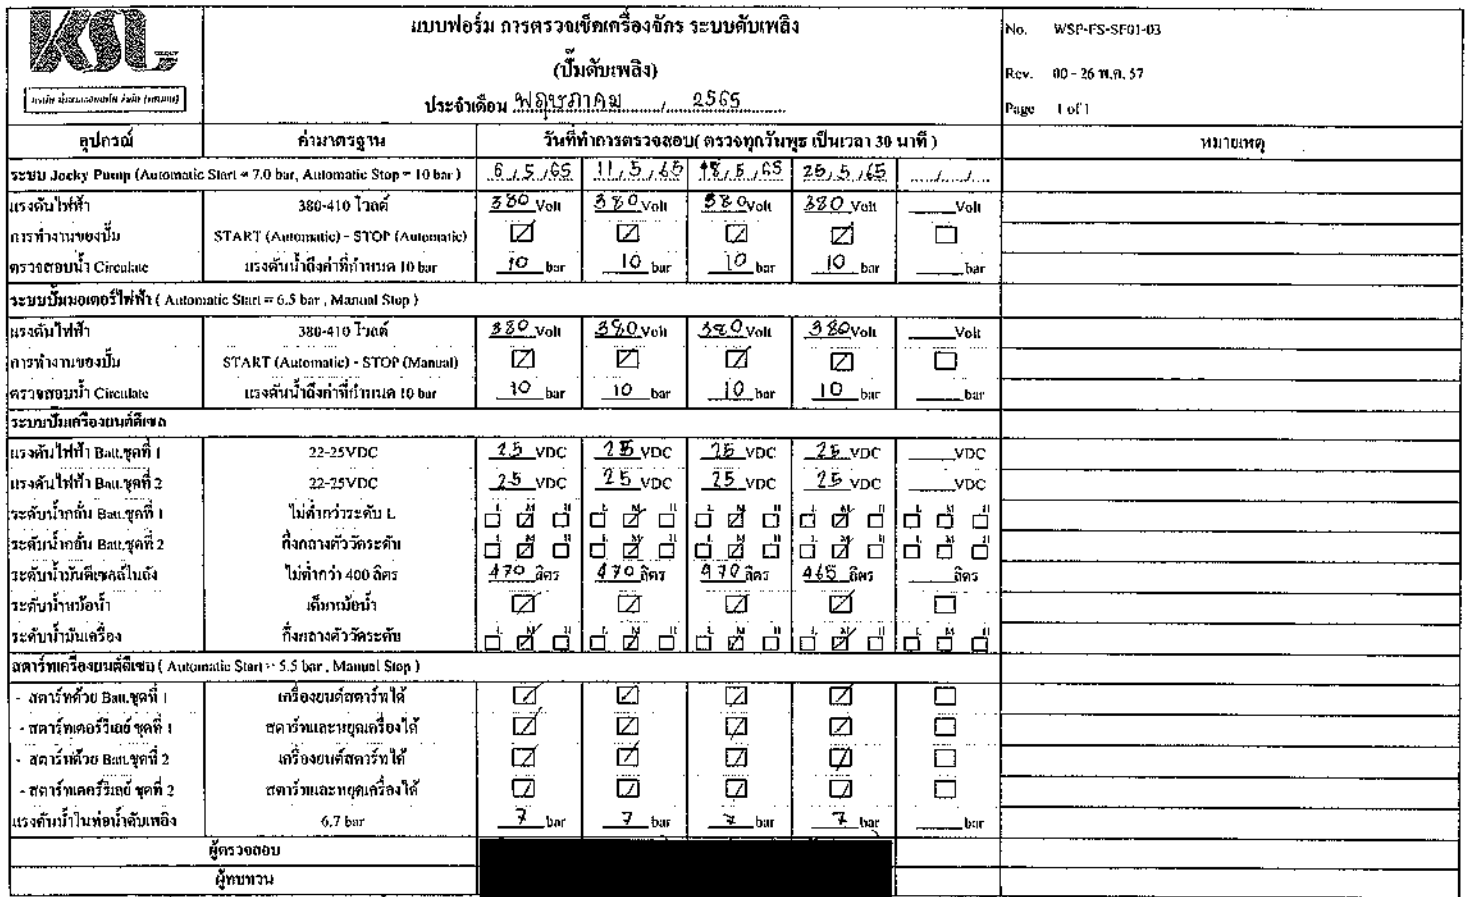 KSL
แบบฟอร์ม การตรวจเช็คเครื่องจักร ระบบดับเพลิง
(ปั๊มดับเพลิง)
ประจำเดือน พฤษภาคม / 2565
No. WSP-FS-SF01-03
Rev. 00 - 26 พ.ค. 57
Page 1 of 1
อุปกรณ์ ค่ามาตรฐาน วันที่ทำการตรวจสอบ( ตรวจทุกวันพุธ เป็นเวลา 30 นาที ) หมายเหตุ
ระบบ Jocky Pump (Automatic Start = 7.0 bar, Automatic Stop = 10 bar ) 6 / 5 / 65 11 / 5 / 65 18 / 5 / 65 25 / 5 / 65 / /
แรงดันไฟฟ้า 380-410 โวลต์ 380 Volt 380 Volt 380 Volt 380 Volt Volt
การทำงานของปั๊ม START (Automatic) - STOP (Automatic)
ตรวจสอบน้ำ Circulate แรงดันน้ำถึงค่าที่กำหนด 10 bar 10 bar 10 bar 10 bar 10 bar bar
ระบบปั๊มมอเตอร์ไฟฟ้า ( Automatic Start = 6.5 bar , Manual Stop )
แรงดันไฟฟ้า 380-410 โวลต์ 380 Volt 380 Volt 380 Volt 380 Volt Volt
การทำงานของปั๊ม START (Automatic) - STOP (Manual)
ตรวจสอบน้ำ Circulate แรงดันน้ำถึงค่าที่กำหนด 10 bar 10 bar 10 bar 10 bar 10 bar bar
ระบบปั๊มเครื่องยนต์ดีเซล
แรงดันไฟฟ้า Batt.ชุดที่ 1 22-25VDC 25 VDC 25 VDC 25 VDC 25 VDC VDC
แรงดันไฟฟ้า Batt.ชุดที่ 2 22-25VDC 25 VDC 25 VDC 25 VDC 25 VDC VDC
ระดับน้ำกลั่น Batt.ชุดที่ 1 ไม่ต่ำกว่าระดับ L L M H L M H L M H L M H L M H
ระดับน้ำกลั่น Batt.ชุดที่ 2 กึ่งกลางตัววัดระดับ L M H L M H L M H L M H L M H
ระดับน้ำมันดีเซลในถัง ไม่ต่ำกว่า 400 ลิตร 470 ลิตร 470 ลิตร 470 ลิตร 465 ลิตร ลิตร
ระดับน้ำหม้อน้ำ เต็มหม้อน้ำ
ระดับน้ำมันเครื่อง กึ่งกลางตัววัดระดับ L M H L M H L M H L M H L M H
สตาร์ทเครื่องยนต์ดีเซล ( Automatic Start = 5.5 bar , Manual Stop )
- สตาร์ทด้วย Batt.ชุดที่ 1 เครื่องยนต์สตาร์ทได้
- สตาร์ทเตอร์รีเลย์ ชุดที่ 1 สตาร์ทและหยุดเครื่องได้
- สตาร์ทด้วย Batt.ชุดที่ 2 เครื่องยนต์สตาร์ทได้
- สตาร์ทเตอร์รีเลย์ ชุดที่ 2 สตาร์ทและหยุดเครื่องได้
แรงดันน้ำในท่อน้ำดับเพลิง 6.7 bar 7 bar 7 bar 7 bar 7 bar bar
ผู้ตรวจสอบ
ผู้ทบทวน